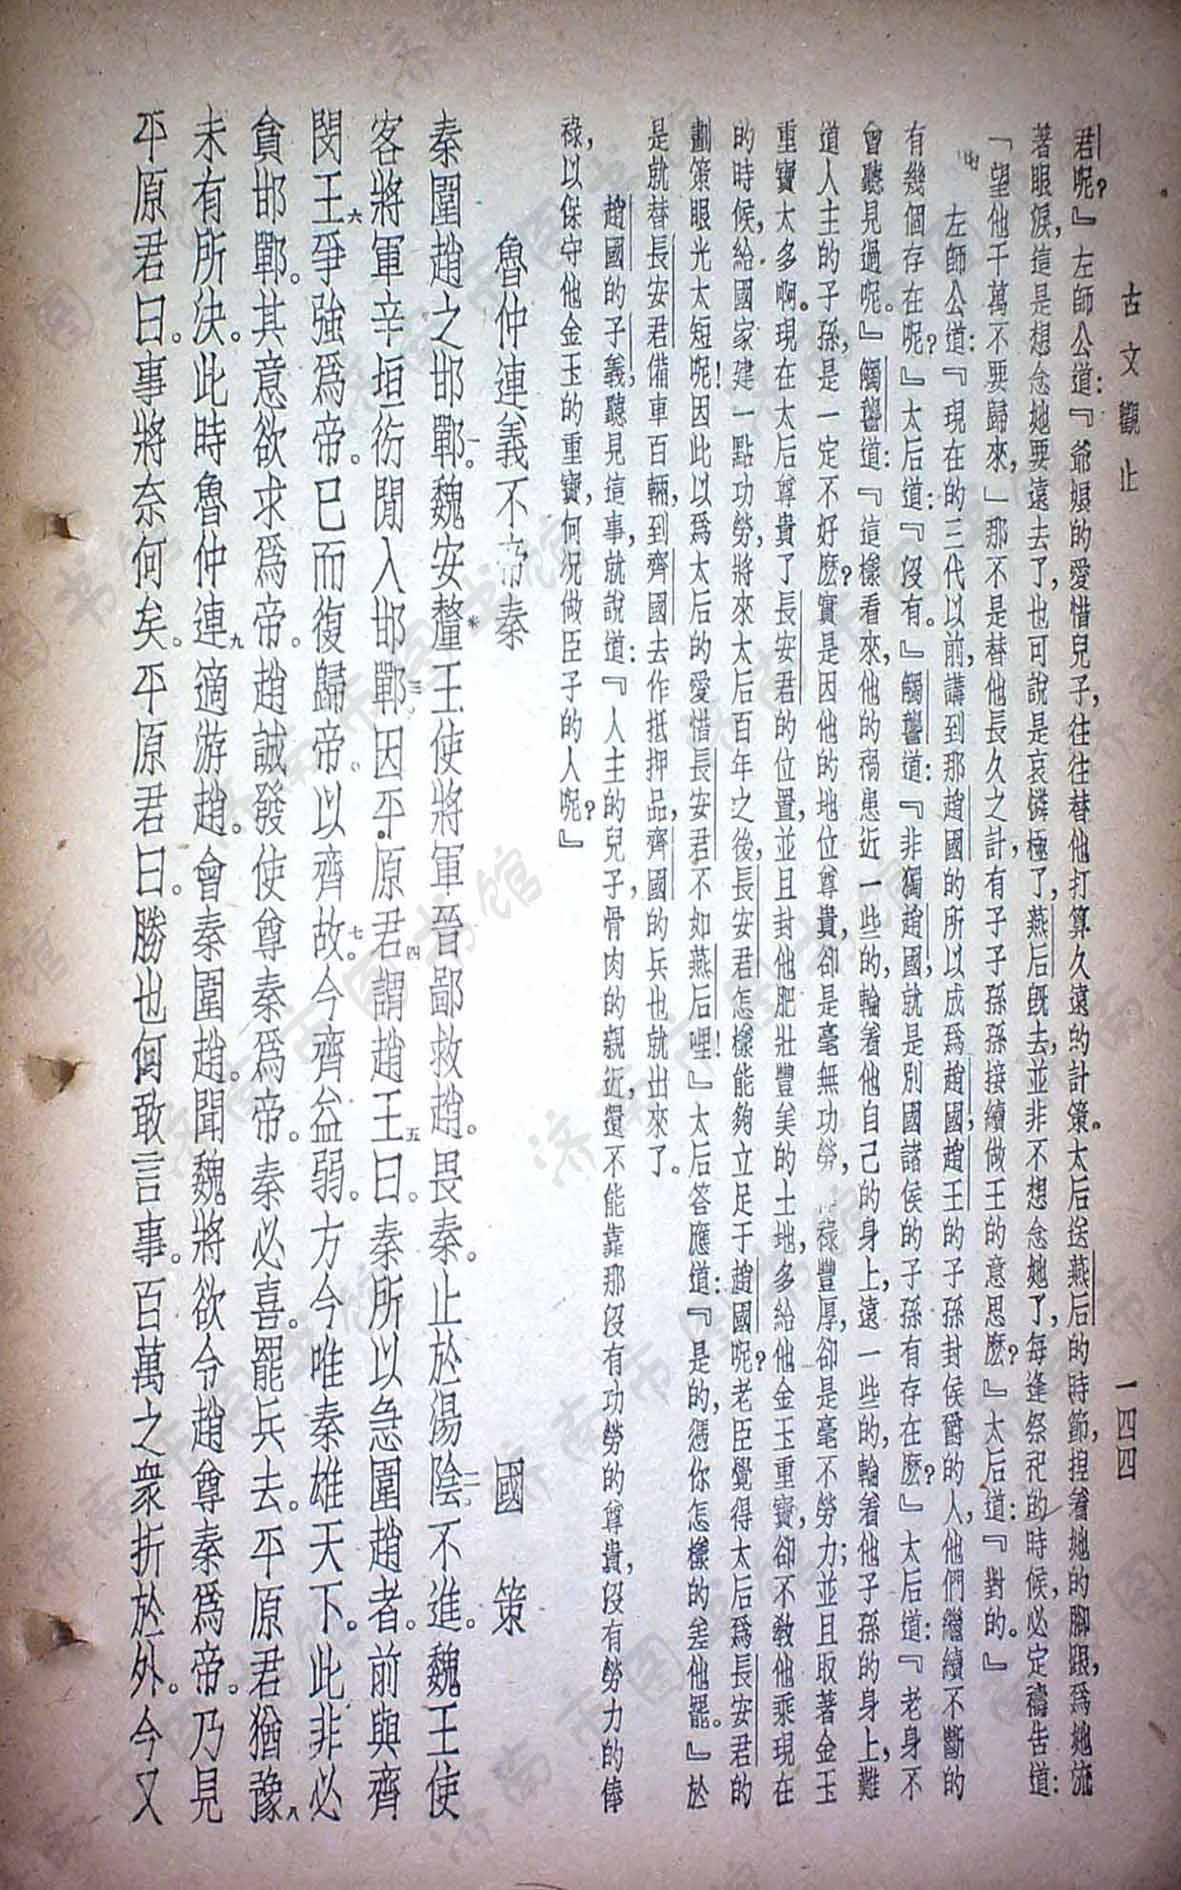 古文觀止
一四四
君呢？』左師公道：『爺娘的愛惜兒子，往往替他打算久遠的計策。太后送燕后的時節，揑着她的腳跟，爲她流
著眼淚，這是想念她要遠去了，也可說是哀憐極了，燕后旣去，並非不想念她了，每逢祭祀的時候，必定禱告道：
「望他千萬不要歸來，」那不是替他長久之計，有子子孫孫接續做王的意思麽？』太后道：『對的。』
左師公道：『現在的三代以前，講到那趙國的所以成爲趙國，趙王的子孫封侯爵的人，他們繼續不斷的
有幾個存在呢？』太后道：『沒有。』觸讋道：『非獨趙國，就是別國諸侯的子孫有存在麽？』太后道：『老身不
會聽見過呢。』觸讋道：『這樣看來，他的禍患近一些的，輪着他自己的身上，遠一些的，輪着他子孫的身上，難
道人主的子孫，是一定不好麽？實是因他的地位尊貴，卻是毫無功勞，祿豐厚，卻是毫不勞力；並且取著金玉
重寶太多啊。現在太后尊貴了長安君的位置，並且封他肥壯豐美的土地，多給他金玉重寶，卻不敎他乘現在
的時候，給國家建一點功勞，將來太后百年之後，長安君怎樣能夠立足于趙國呢？老臣覺得太后爲長安君的
劃策眼光太短呢！因此以爲太后的愛惜長安君不如燕后哩！』太后答應道：『是的，憑你怎樣的差他罷。』於
是就替長安君備車百輛，到齊國去作抵押品，齊國的兵也就出來了。
趙國的子義聽見這事，就說道：『人主的兒子，骨肉的親近，還不能靠那沒有功勞的尊貴，沒有勞力的俸
祿，以保守他金玉的重寶，何況做臣子的人呢？』
魯仲連義不帝秦
國策
秦圍趙之邯鄲。一魏安釐※王使將軍晉鄙救趙。畏秦。止於湯陰二不進。魏王使
客將軍辛垣衍閒入邯鄲三因平原君四謂趙王五曰。秦所以急圍趙者。前與齊
閔王六爭強爲帝。已而復歸帝。以齊故。七今齊益弱。方今唯秦雄天下。此非必
貪邯鄲。其意欲求爲帝。趙誠發使尊秦爲帝。秦必喜。罷兵去。平原君猶豫八
未有所決。此時魯仲連九適游趙。會秦圍趙。聞魏將欲令趙尊秦爲帝。乃見
平原君曰。事將奈何矣。平原君曰。勝也何敢言事。百萬之衆折於外。今又